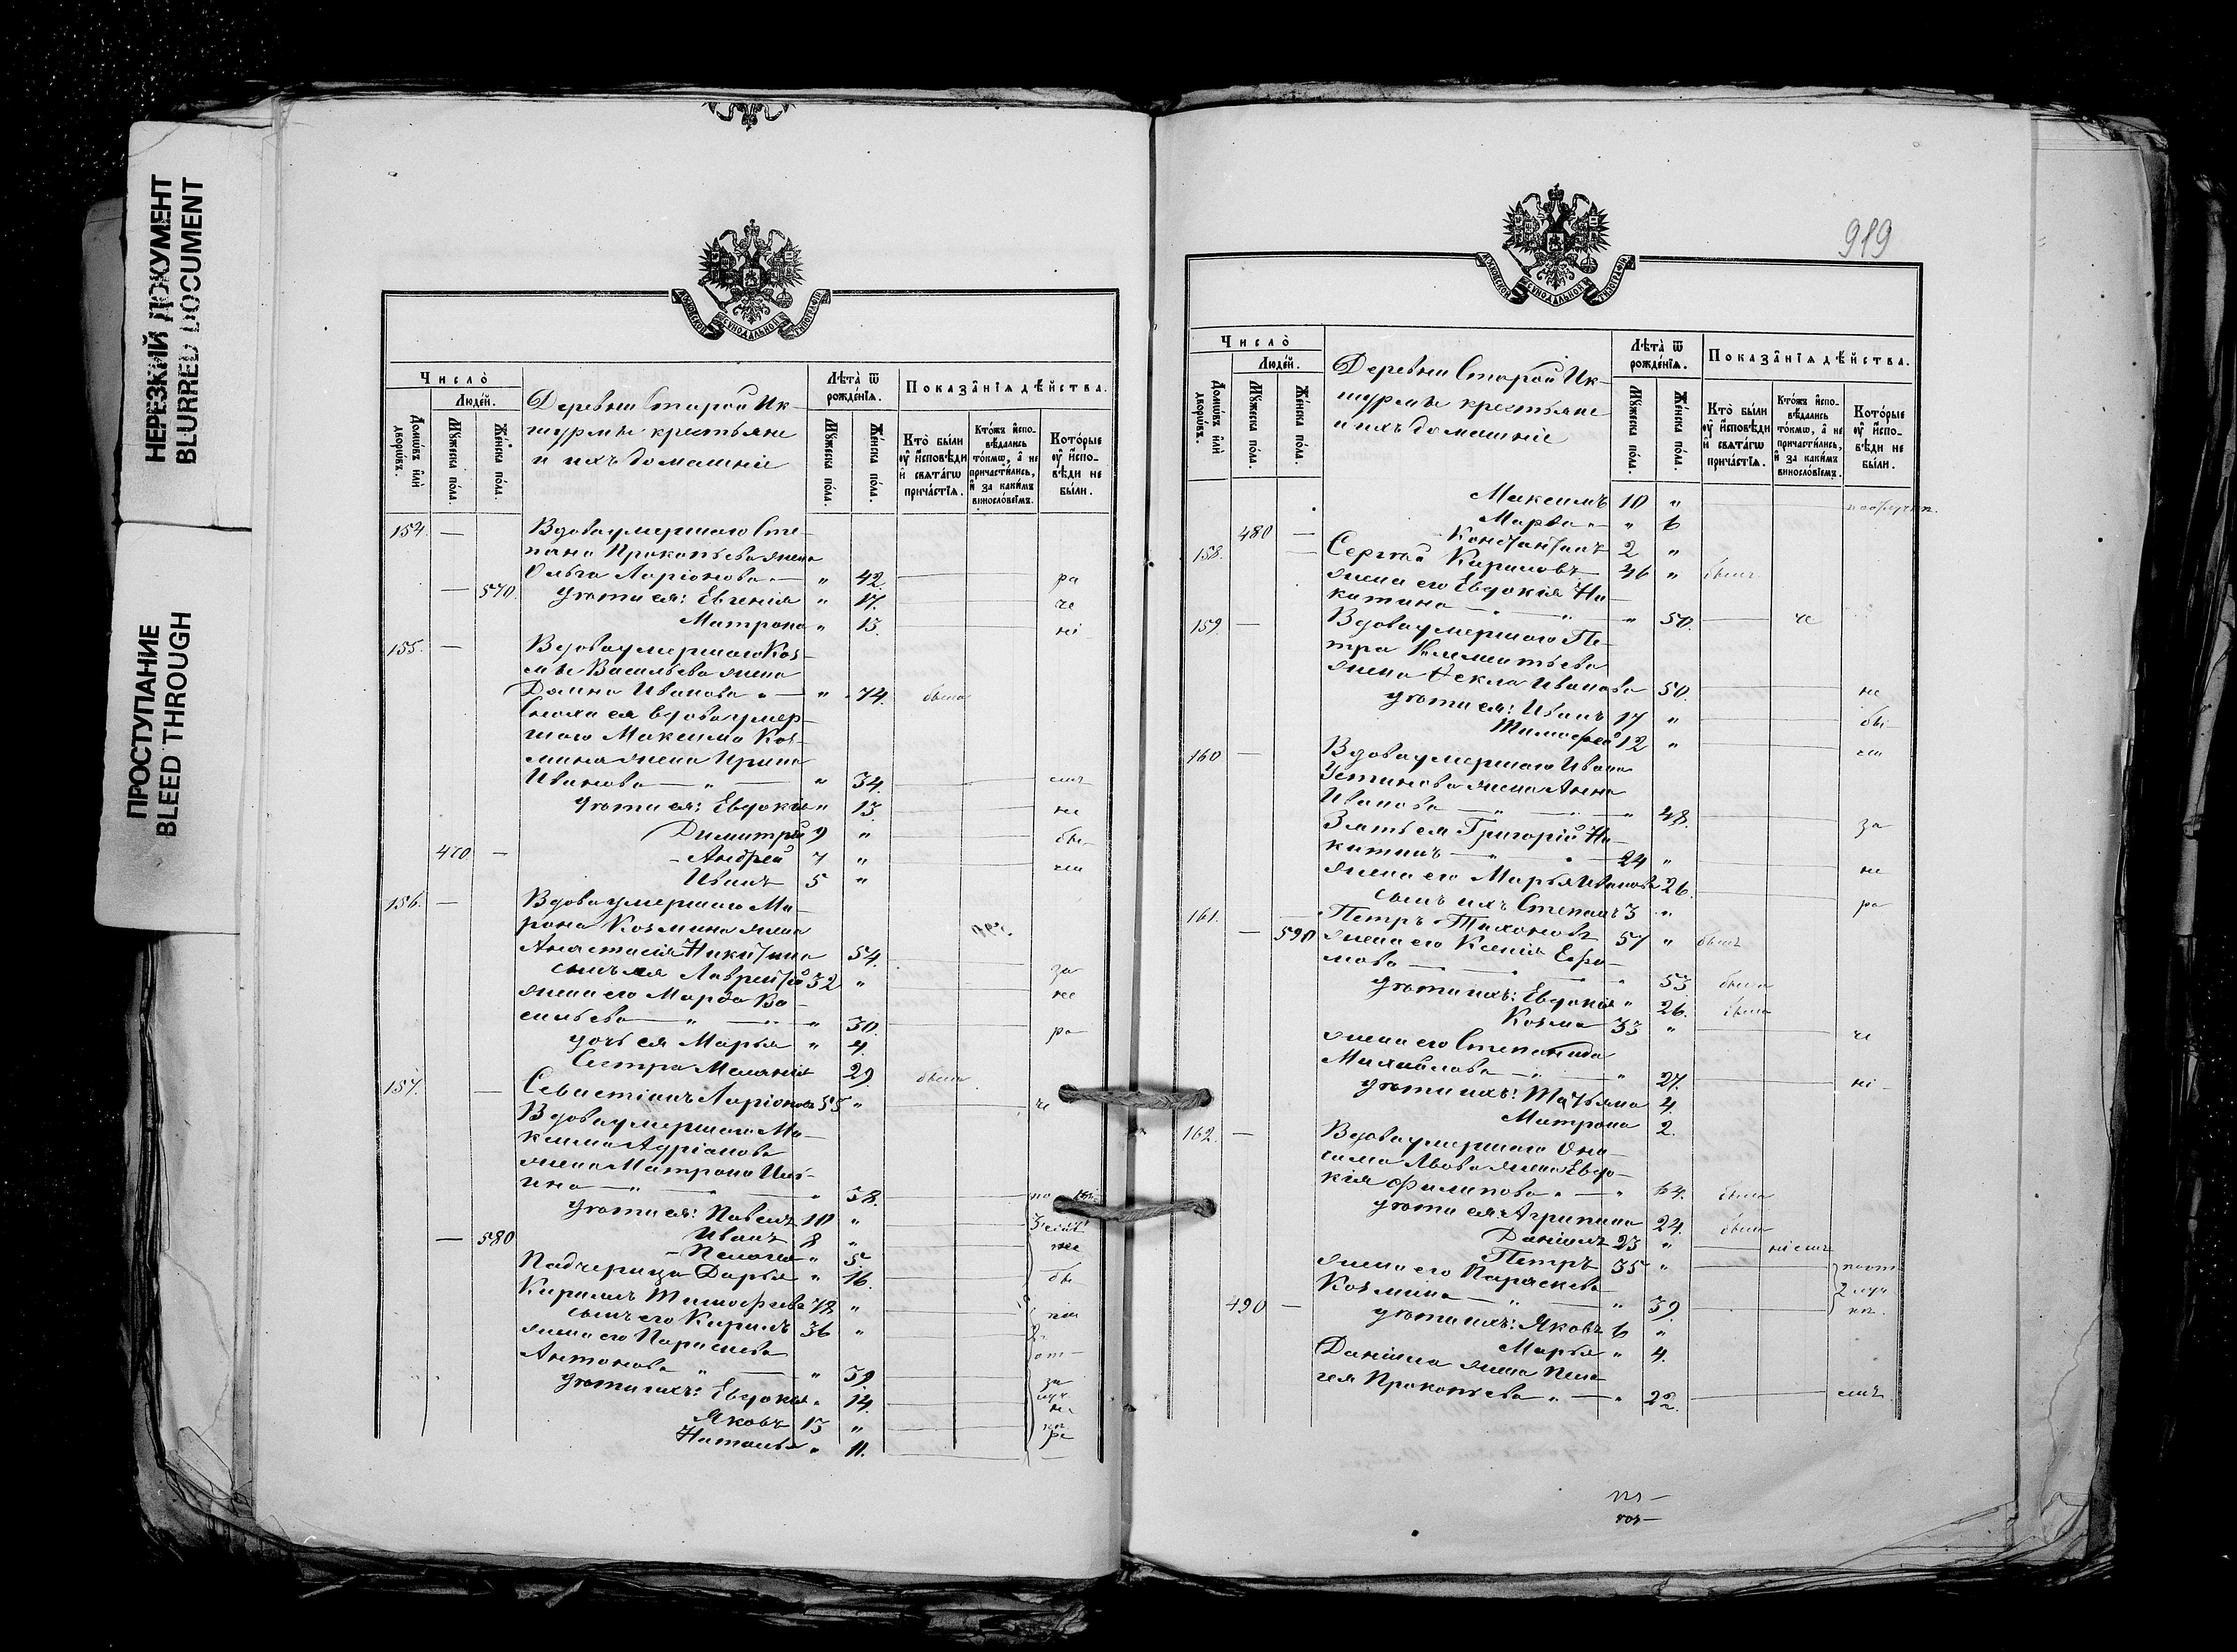 НЕРЕЗКИЙ ДОКУМЕНТ
BLURRED DOCUMENT
ПРОСТУПАНИЕ
BLEED THROUGH
МОСКОВСКОЙ СѴНОДАЛЬНОЙ ТИПОГРАФІИ
Число̀
Людей.
Домѡвъ и҆лѝ дворѡвъ.
Мꙋжеска пола.
Женска пола.
Деревни Старой Ик-
шурмы крестьяне
и ихъ домашніе
Лѣта̀ ѿ рожденїѧ.
Мꙋжеска пола.
Женска пола.
Показанїѧ дѣйства.
Кто̀ были ᲂу҆ и҆сповѣди и҆ свѧтагѡ причастїѧ.
Ктожъ и҆сповѣдались токмѡ, а҆ не причастились, и҆ за какимъ винословїемъ.
Которые ᲂу҆ и҆сповѣди не были.
154. — Вдова умершаго Сте-
пана Прокопьева жена
Ольга Ларіонова — " 42. ра
— 570. дѣти ея: Евгенія " 17. че
Матрона " 13. ні
155. — Вдова умершаго Коз-
мы Васильева жена
Домна Иванова " — " 74. была
Сноха ея вдова умер-
шаго Максима Коз-
мина жена Ирина
Иванова — " — " 34.
дѣти ея: Евдокія " 13. не
Димитрій 9 " бы-
470 — Андрей 7 "
Иванъ 5 "
156. — Вдова умершаго Ма-
рона Козмина жена
Анастасія Никитина 54. за
сынъ ея Лаврентій 32 " не
жена его Марѳа Ва-
сильева — " — " 30. ра
дочь ея Марья " 4.
Сестра Меланія 29. была
157. — Севастіанъ Ларіоновъ 55 "
Вдова умершаго Ма-
ксима Адріанова
жена Матрона Иль-
ина — " — " 38. по
дѣти ея: Павелъ 10 "
Иванъ 8 "
— 580 — Пелагея " 5.
Падчерица Дарья " 16. бы
Кирилъ Тимофеевъ 78 "
сынъ его Кирилъ 36 "
жена его Параскева
Антонова " — " 39. за
дѣти ихъ: Евдокія " 14.
Яковъ 13 "
Наталья " 11.
919
МОСКОВСКОЙ СѴНОДАЛЬНОЙ ТИПОГРАФІИ
Число̀
Людей.
Домѡвъ и҆лѝ дворѡвъ.
Мꙋжеска пола.
Женска пола.
Деревни Старой Ик-
шурмы крестьяне
и ихъ домашніе
Лѣта̀ ѿ рожденїѧ.
Мꙋжеска пола.
Женска пола.
Показанїѧ дѣйства.
Кто̀ были ᲂу҆ и҆сповѣди и҆ свѧтагѡ причастїѧ.
Ктожъ и҆сповѣдались токмѡ, а҆ не причастились, и҆ за какимъ винословїемъ.
Которые ᲂу҆ и҆сповѣди не были.
Максимъ 10 "
Марѳа " — " 6
480 — Константинъ 2 "
158. — Сергей Кириловъ 46 " былъ
жена его Евдокія Ни-
китина — " — " 50. че
159. — Вдова умершаго Пе-
тра Климентьева
жена Ѳекла Иванова 50. не
дѣти ея: Иванъ 17 " бы-
Тимофей 12 "
160 — Вдова умершаго Ивана
Устинова жена Анна
Иванова — " — " 48. за
Зять ея Григорій Ни-
китинъ — " — 24 " не
жена его Марья Иванова 26. ра
сынъ ихъ Степанъ 3 "
161. — Петръ Тихоновъ 57 " былъ
— 590 жена его Ксенія Ефи-
мова — " — " 53 была
дѣти ихъ: Евдокія " 26. была
Козма 33 " че
жена его Степанида
Михайлова — " — " 27. ні-
дѣти ихъ: Татьяна 4.
Матрона 2.
162. — Вдова умершаго Они-
сима Львова жена Евдо-
кія Филипова " — " 64. была
дѣти ея Агрипина 24. была
Даніилъ 23 "
Петръ 35 "
жена его Параскева
Козмина — " — " 39.
490 — дѣти ихъ: Яковъ 6 "
Марья " 4.
Даніила жена Пела-
гея Прокопьева " — " 22.